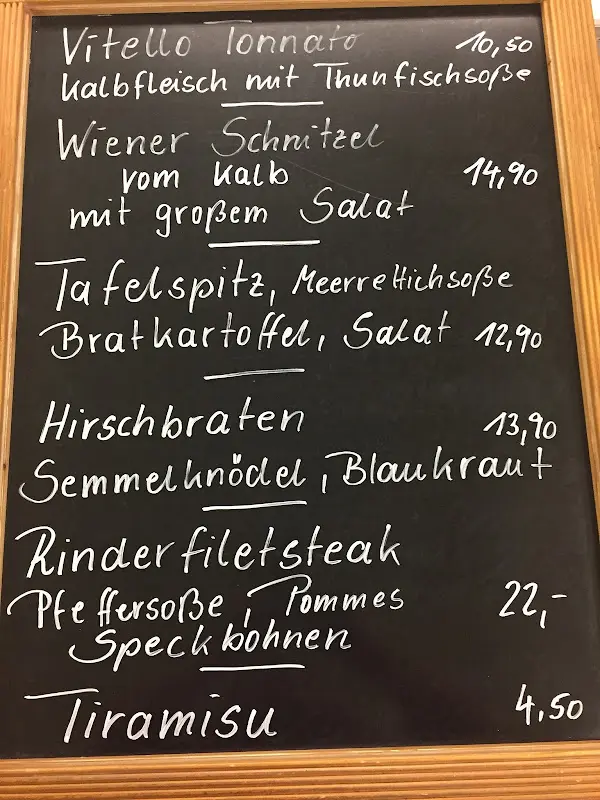 Vitello Tonnato 10,50
Kalbfleisch mit Thunfischsoße
Wiener Schnitzel
vom Kalb 14,90
mit großem Salat
Tafelspitz, Meerrettichsoße
Bratkartoffel, Salat 12,90
Hirschbraten 13,90
Semmelknödel, Blaukraut
Rinderfiletsteak
Pfeffersoße, Pommes 22,-
Speckbohnen
Tiramisu 4,50